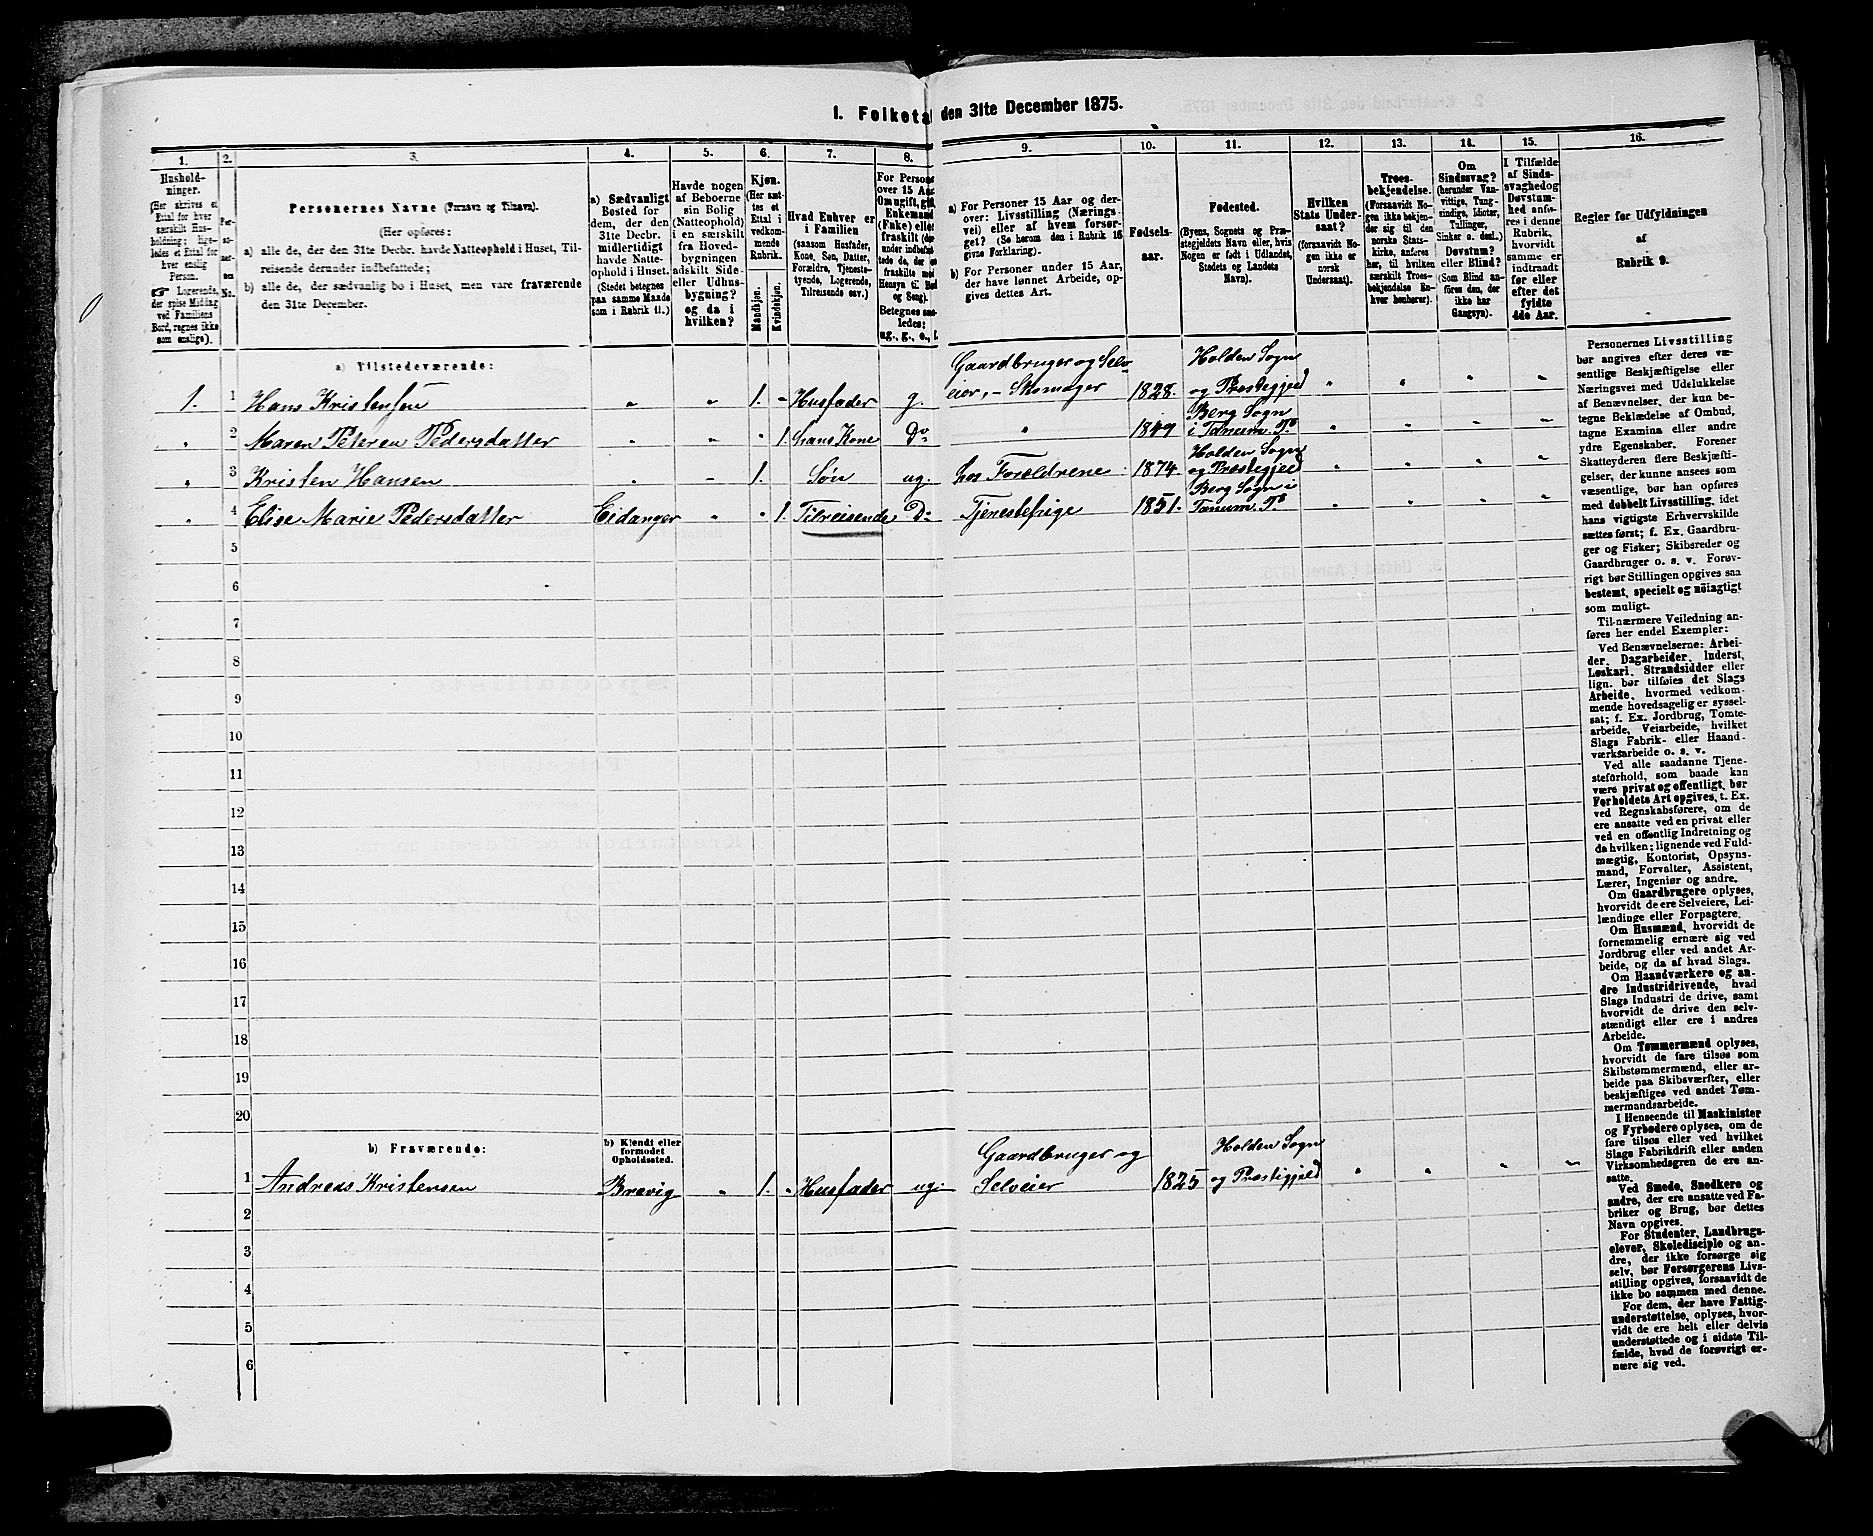 1. Folketal den 31te December 1875.
1. 2. 3. 4. 5. 6. 7. 8. 9. 10. 11. 12. 13. 14. 15. 16.
Hushold-
ninger.
(Her skrives et
Ettal for hver
særskilt Hus-
holdning; lige-
ledes et Ettal for
hver enslig
Person.
☞ Logerende,
der spise Middag
ved Familiens
Bord, regnes ikke
som enslige).
Personernes Navne (Fornavn og Tilnavn).
(Her opføres:
a) alle de, der den 31te Decbr. havde Natteophold i Huset, Til-
reisende derunder indbefattede;
b) alle de, der sædvanlig bo i Huset, men vare fraværende
den 31te December.
a) Sædvanligt
Bosted for
dem, der den
31te Decbr.
midlertidigt
havde Natte-
ophold i Huset.
(Stedet betegnes
paa samme Maade
som i Rubrik 11.)
Havde nogen
af Beboerne
sin Bolig
(Natteophold)
i en særskilt
fra Hoved-
bygningen
adskilt Side-
eller Udhus-
bygning?
og da i
hvilken?
Kjøn.
(Her sæt-
tes et
Ettal i
vedkom-
mende
Rubrik.
Mandkjøn.
Kvindekjøn.
Hvad Enhver er
i Familien
(saasom Husfader,
Kone, Søn, Datter,
Forældre, Tjeneste-
tyende, Logerende,
Tilreisende osv.)
For Persone
over 15 Aar
Om ugift, gift
Enkemand
(Enke) elle
fraskilt (der
under indbefat
tede de, der e
fraskilte med
Hensyn til Bo
og Seng).
Betegnes saa-
ledes:
ug., g., e., f.
a) For Personer 15 Aar og der-
over: Livsstilling (Nærings-
vei) eller af hvem forsør-
get? (Se herom den i Rubrik 16
givne Forklaring).
b) For Personer under 15 Aar,
der have lønnet Arbeide, op-
gives dettes Art.
Fødsels-
aar.
Fødested.
(Byens, Sognets og Præ-
stegjeldets Navn eller, hvis
Nogen er født i Udlandet,
Stedets og Landets
Navn).
Hvilken
Stats Under-
saat?
(forsaavidt No-
gen ikke er
norsk
Undersaat).
Troes-
bekjendelse.
(Forsaavidt No-
gen ikke bekjen-
der sig til den
norske Stats-
kirke, anføres
her, til hvilken
særskilt Troes-
bekjendelse En-
hver henhører).
Om
Sindssvag?
(herunder Van-
vittige, Tung-
sindige, Idioter,
Tullinger,
Sinker o. desl.)
Døvstum?
eller Blind?
(Som Blind an-
føres den, der
ikke har
Gangsyn).
I Tilfælde
af Sinds-
svaghed og
Døvstum-
hed anfø-
res i denne
Rubrik,
hvorvidt
samme er
indtraadt
før eller
efter det
fyldte
4de Aar.
Regler for Udfyldningen
af
Rubrik 9.
a) Tilstedeværende:
Gaardbruger og Selv Holden Sogn
1. 1 Hans Kristensen " " 1. " Husfader g. eier, - Skomager 1828. og Præstegjeld " " " "
Berg Sogn
" 2 Maren Peterea Pedersdatter " " " 1. hans Kone Do " 1849 i Tanum Pr. " " " "
Holden Sogn
" 3 Kristen Hansen " " 1. Søn ug. hos Forældrene 1874. og Præstegjeld " " " "
Berg Sogn i
" 4 Elise Marie Pedersdatter Eidanger " " 1. Tilreisende Do Tjenestepige 1851. Tanum Pr. " " " "
5
6
7
8
9
10
11
12
13
14
15
16
17
18
19
20
b) Fraværende:
b) Kjendt eller
formodet
Opholdssted.
Gaardbruger og Holden Sogn
1 Andreas Kristensen Brevig " 1. " Husfader ug. Selveier 1825 og Præstigjeld " " " "
2
3
4
5
6
Personernes Livsstilling
bør angives efter deres væ-
sentlige Beskjæftigelse eller
Næringsvei med Udelukkelse
af Benævnelser, der kun be-
tegne Beklædelse af Ombud,
tagne Examina eller andre
ydre Egenskaber. Forener
Skatteyderen flere Beskjæfti-
gelser, der kunne ansees som
væsentlige, bør han opføres
med dobbelt Livsstilling, idet
hans vigtigste Erhvervskilde
sættes først; f. Ex. Gaardbru-
ger og Fisker; Skibsreder og
Gaardbruger o. s. v. Forøv-
rigt bør Stillingen opgives saa
bestemt, specielt og nøiagtigt
som muligt.
Til nærmere Veiledning an-
føres her endel Exempler:
Ved Benævnelserne: Arbei-
der, Dagarbeider, Inderst,
Løskari, Strandsidder eller
lign. bør tilføies det Slags
Arbeide, hvormed vedkom-
mende hovedsagelig er syssel-
sat; f. Ex. Jordbrug, Tomte-
arbeide, Veiarbeide, hvilket
Slags Fabrik- eller Haand-
værksarbeide o. s. v.
Ved alle saadanne Tjene-
steforhold, som baade kan
være privat og offentligt, bør
Forholdets Art opgives, t. Ex.
ved Regnskabsførere, om de
ere ansatte ved en privat eller
ved en offentlig Indretning og
da hvilken; lignende ved Fuld-
mægtig, Kontorist, Opsyns-
mand, Forvalter, Assistent,
Lærer, Ingeniør og andre.
Om Gaardbrugere oplyses,
hvorvidt de ere Selveiere, Lei-
lændinge eller Forpagtere.
Om Husmænd, hvorvidt de
fornemmelig ernære sig ved
Jordbrug eller ved andet Ar-
beide, og da af hvad Slags.
Om Haandværkere og an-
dre Industridrivende, hvad
Slags Industri de drive, samt
hvorvidt de drive den selv-
stændigt eller ere i andres
Arbeide.
Om Tømmermænd oplyses,
hvorvidt de fare tilsøs som
Skibstømmermænd, eller ar-
beide paa Skibsværfter, eller
beskjæftiges ved andet Tøm-
mermandsarbeide.
I Henseende til Maskinister
og Fyrbødere oplyses, om de
fare tilsøs eller ved hvilket
Slags Fabrikdrift eller anden
Virksomhedsgren de ere an-
satte.
Ved Smede, Snedkere og
andre, der ere ansatte ved Fa-
briker og Brug, bør dettes
Navn opgives.
For Studenter, Landbrugs-
elever, Skoledisciple og an-
dre, der ikke forsørge sig
selv, bør Forsørgerens Livs-
stilling opgives, forsaavidt de
ikke bo sammen med denne.
For dem, der have Fattig-
understøttelse, oplyses, hvor-
vidt de ere helt eller delvis
understøttede og i sidste Til-
fælde, hvad de forøvrigt er-
nære sig ved.